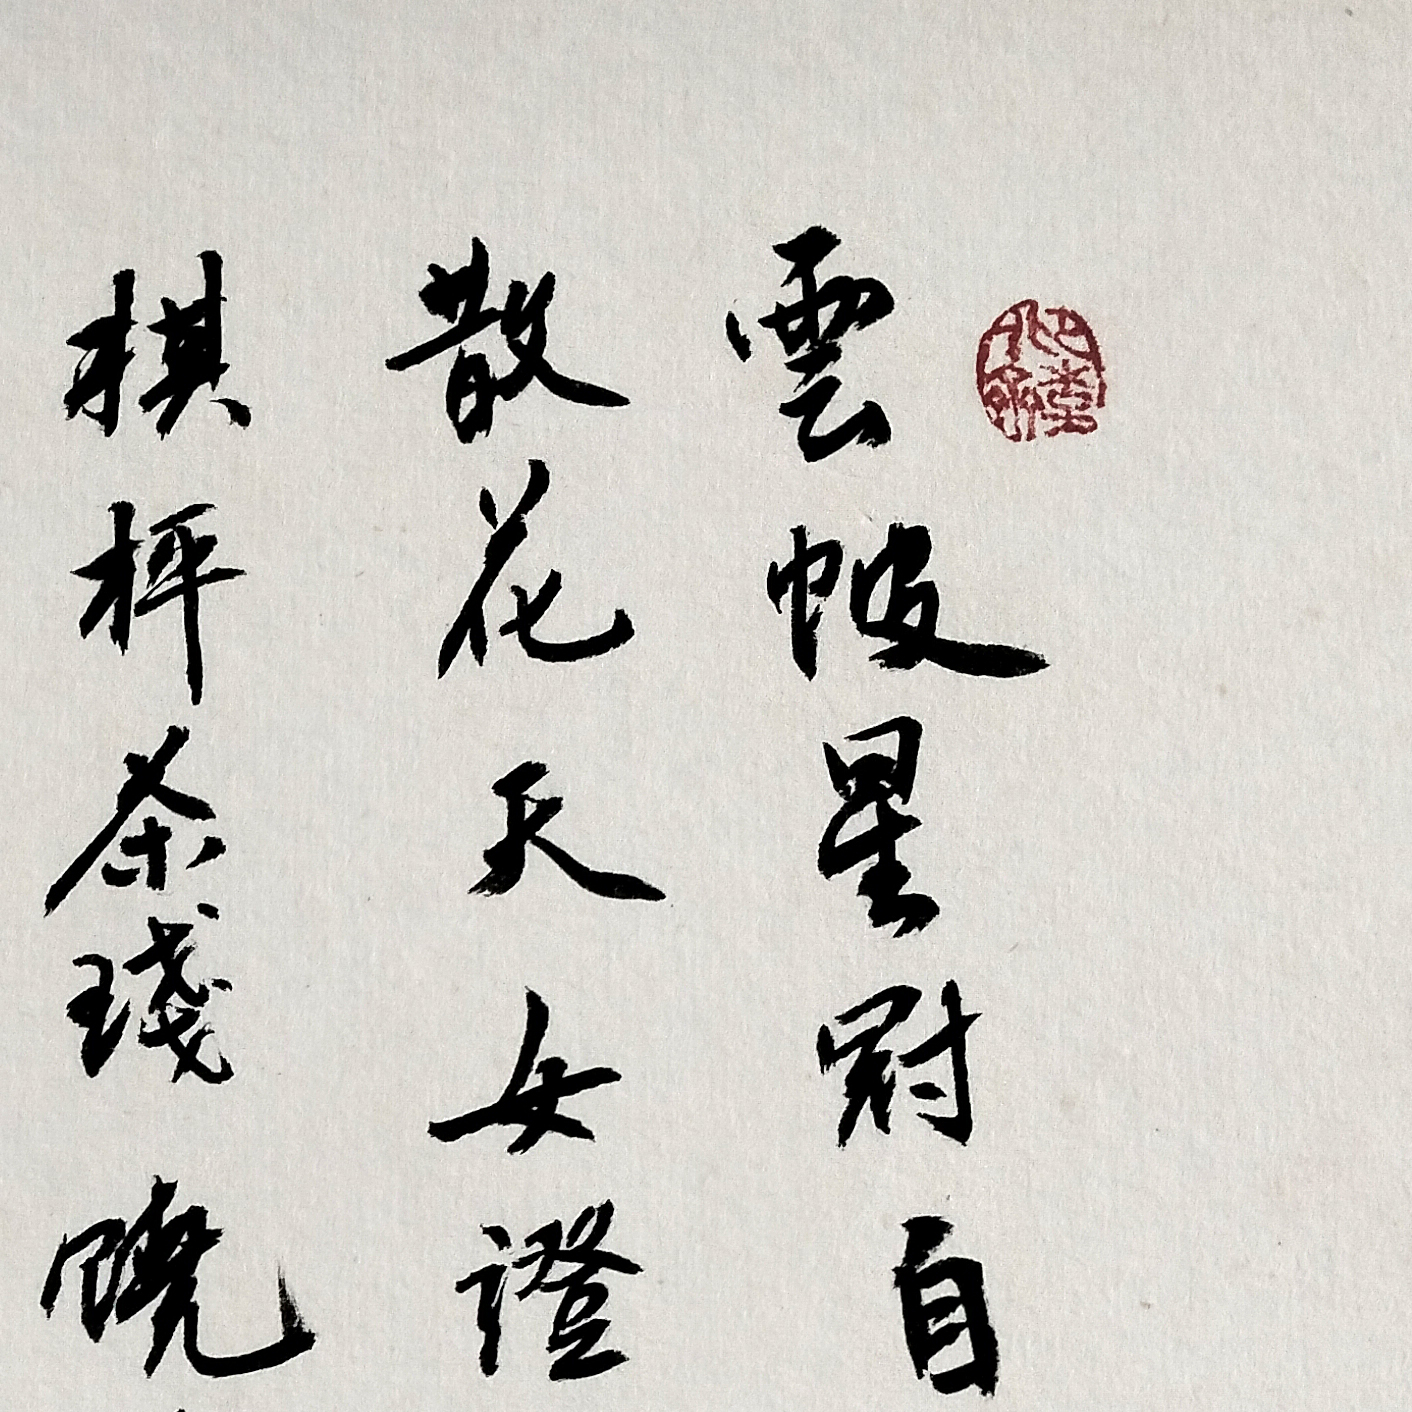 雲帔星冠自
散花天女證
棋枰茶琖曉